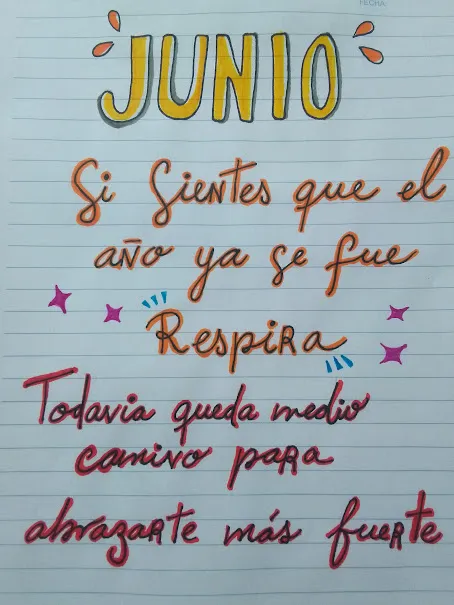 FECHA:
JUNIO
Si Sientes que el
año ya se fue
Respira
Todavia queda medio
camino para
abrazarte más fuerte